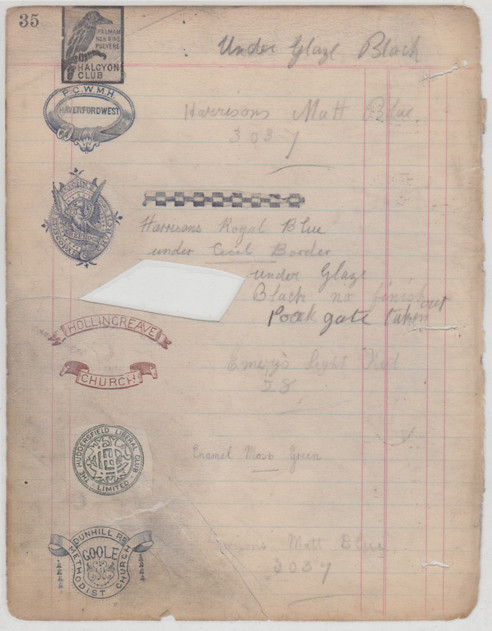 35
PALMAM
HALCYON
CLUB
Under Glaze Black
P.C.W.M.H.
HAVERFORDWEST
Harrisons Matt Blue.
3037
Harrisons Royal Blue
under Cecil Border
under Glaze
Black no finish
Pookgate taken out
HOLLINGREAVE
CHURCH
Emery's Light Red
28
THE HUDDERSFIELD LIBERAL CLUB
LIMITED
Enamel Moss Green
DUNHILL RD
GOOLE
METHODIST CHURCH
Matt Blue,
3037